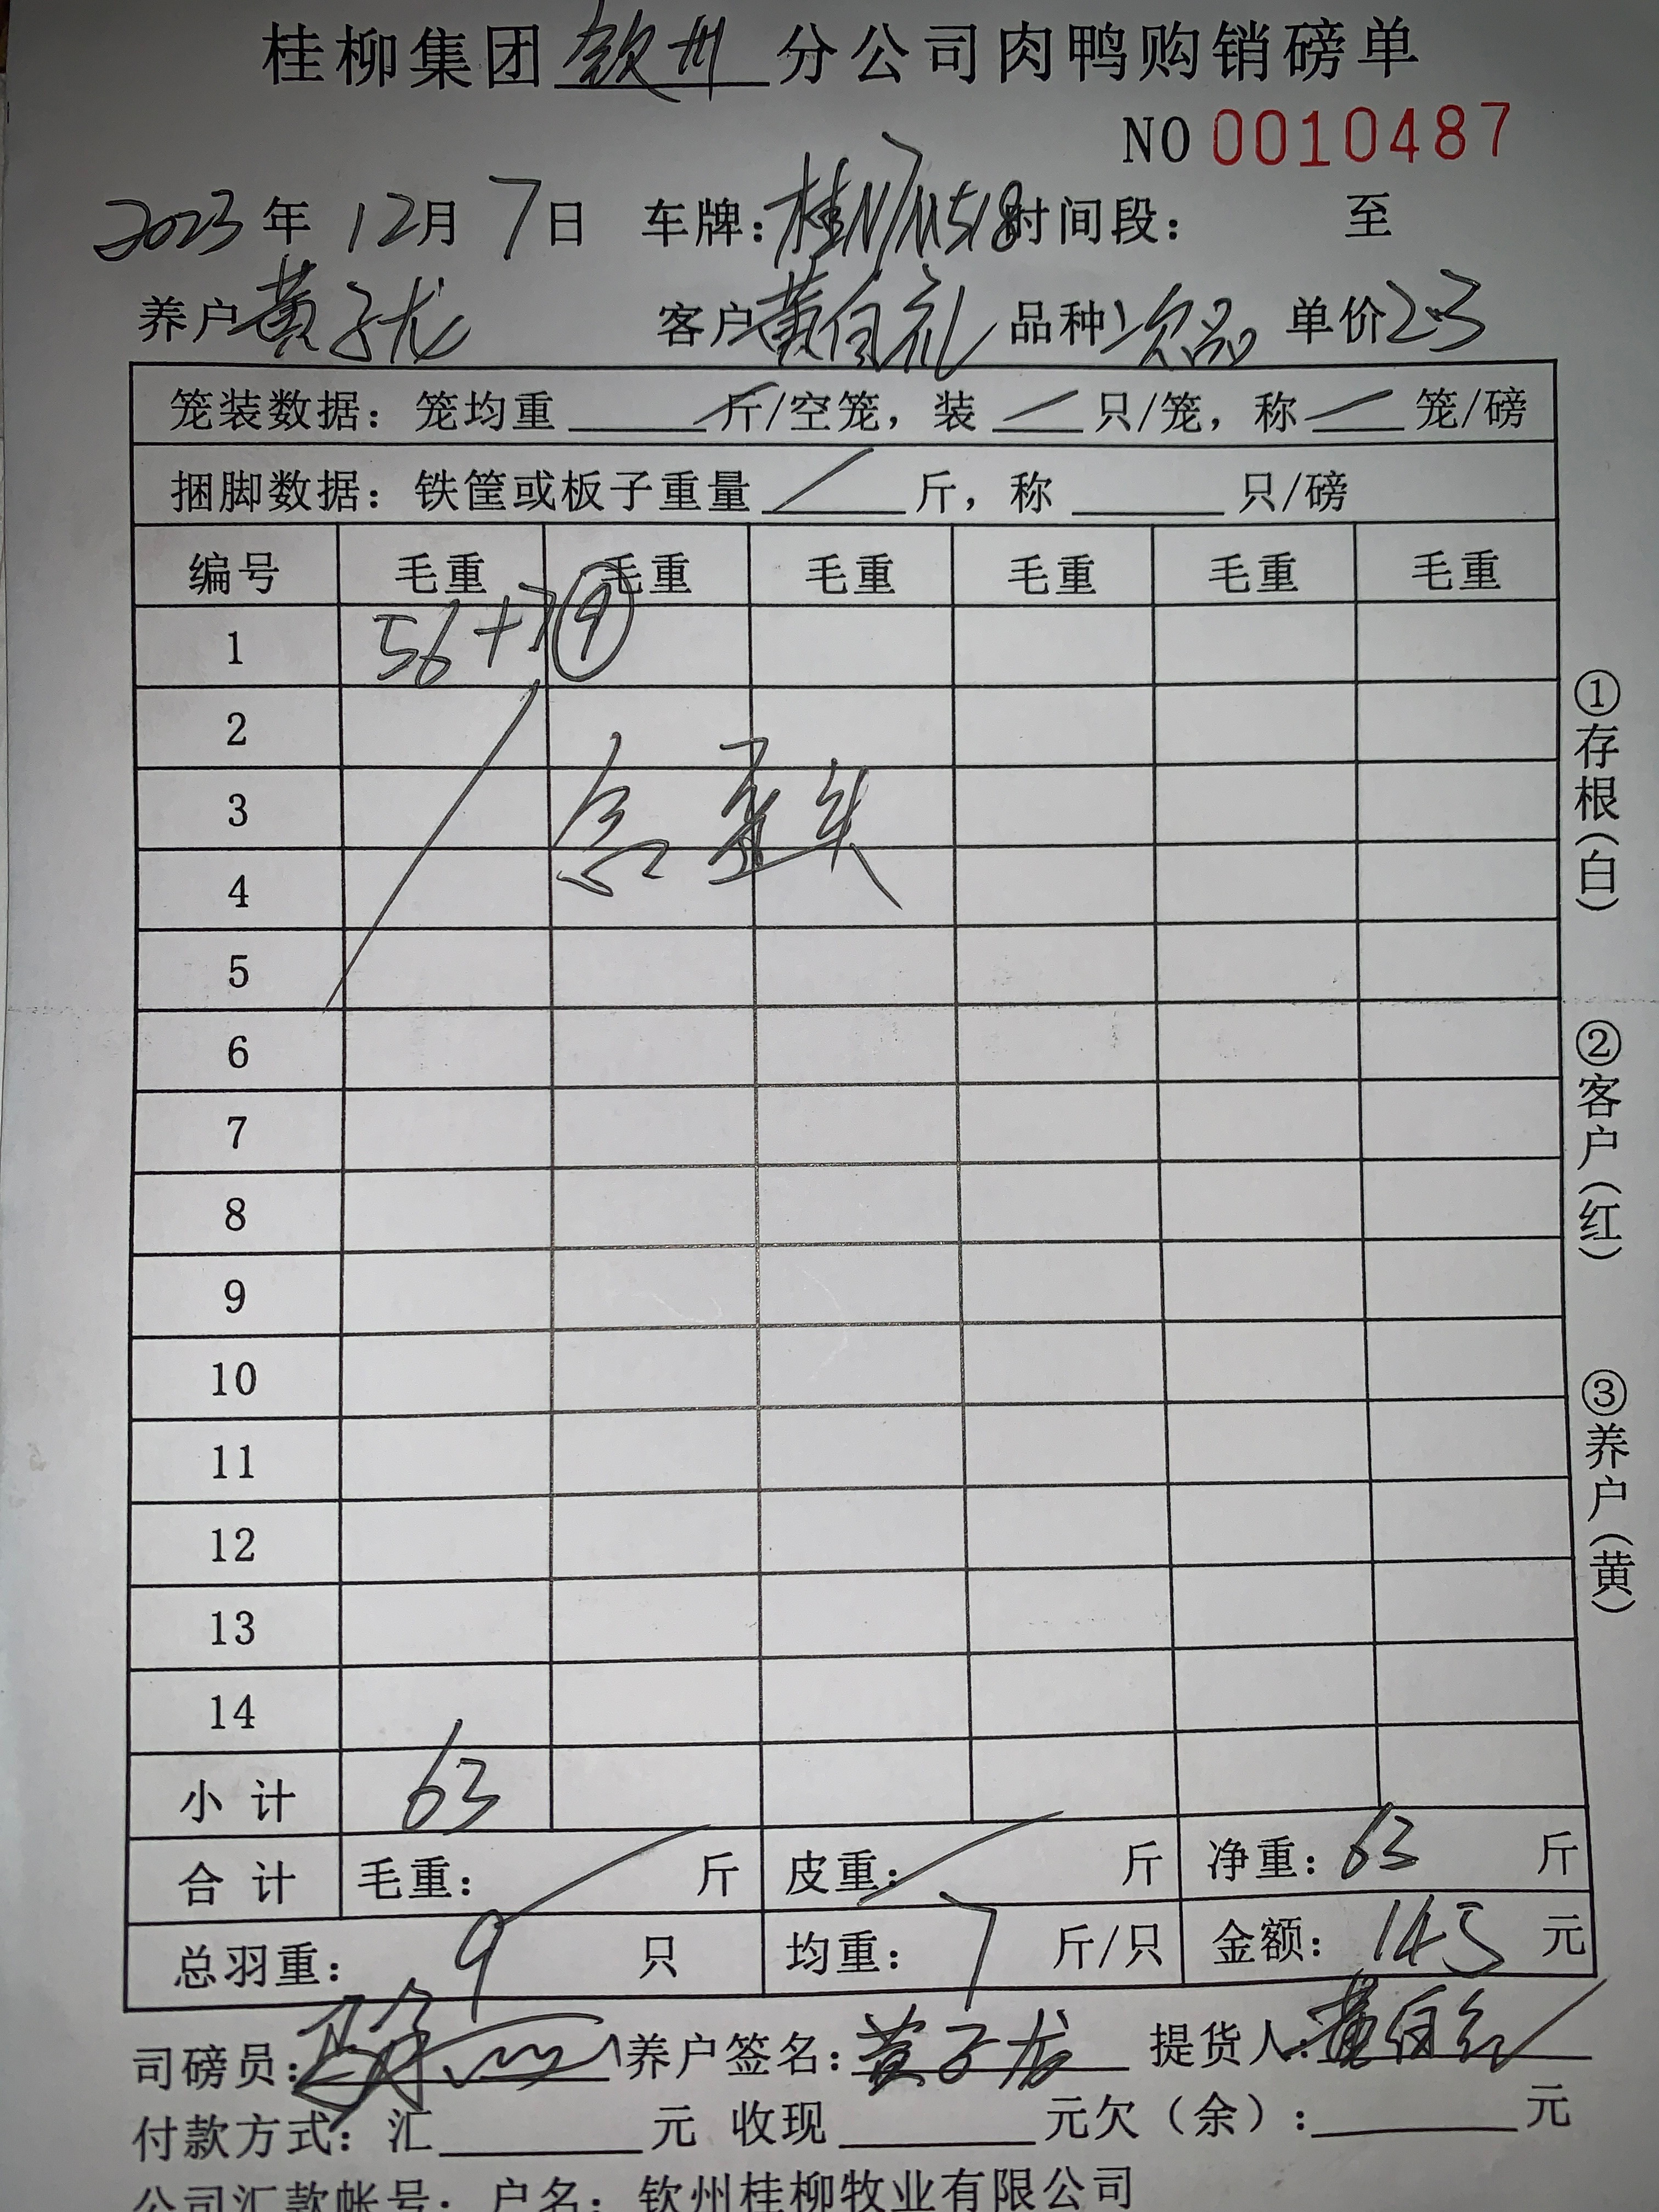 桂柳集团钦州分公司肉鸭购销磅单
NO 0010487
2023年12月7日 车牌:桂 时间段: 至
养户黄子龙 客户黄 品种次品 单价2.3
笼装数据: 笼均重 斤/空笼, 装 只/笼, 称 笼/磅
捆脚数据: 铁筐或板子重量 斤, 称 只/磅
编号 毛重 毛重 毛重 毛重 毛重 毛重
1 56+7 ⑨
2
3 含歪头
4
5
6
7
8
9
10
11
12
13
14
小计 63
合计 毛重: 斤 皮重: 斤 净重: 63 斤
总羽重: 9 只 均重: 7 斤/只 金额: 145 元
司磅员: 养户签名: 黄子龙 提货人: 黄
付款方式: 汇 元 收现 元欠(余): 元
公司汇款帐号: 户名: 钦州桂柳牧业有限公司
①存根(白)
②客户(红)
③养户(黄)